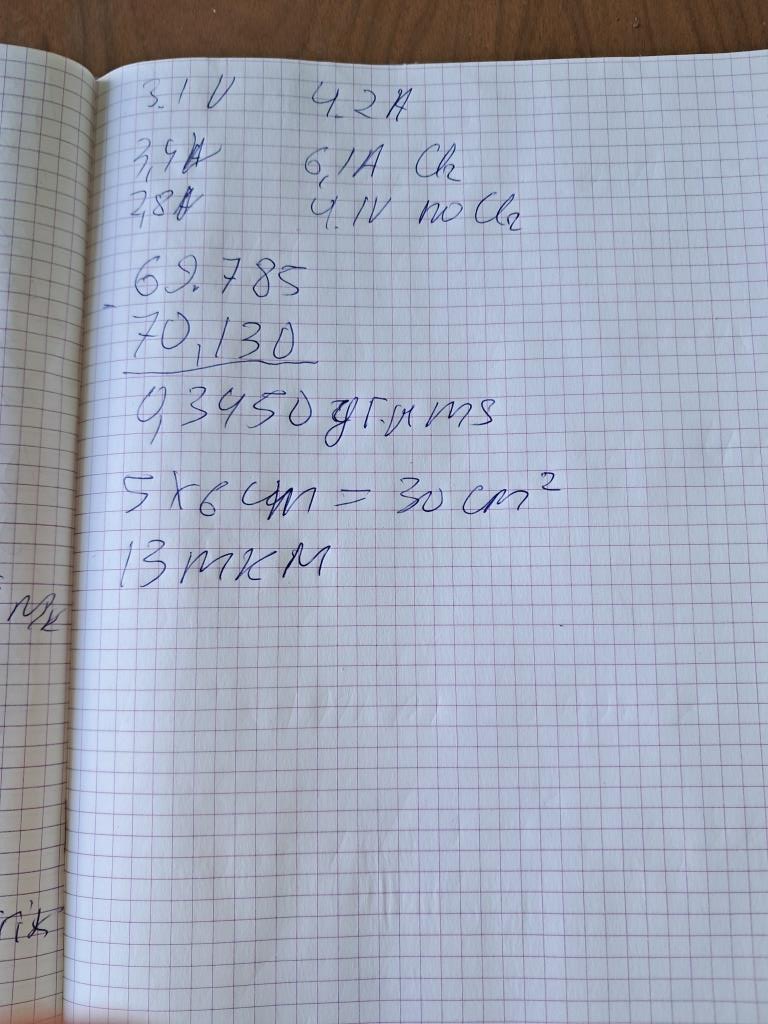 3.1 V 4.2 A
3,4A 6,1A Cl2
2,8A 4.1V no Cl2
69.785
- 70,130
0,3450
5 x 6 cm = 30 cm²
13 mкм
мк